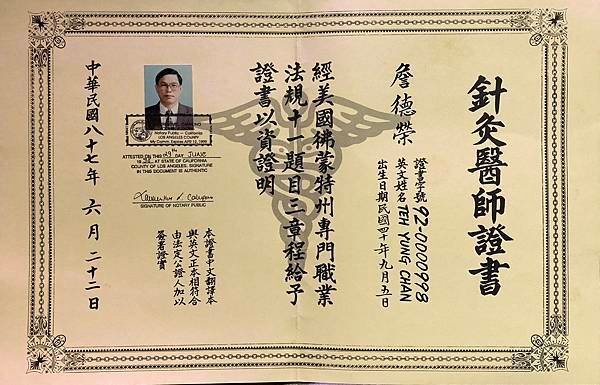 針灸醫師證書
詹德榮
證書字號 92-0000998
英文姓名 TEH YUNG CHAN
出生日期民國四十年九月五日
經美國佛蒙特州專門職業
法規十一題目三章程給予
證書以資證明
本證書中文翻譯本
與英文正本相符合
由法定公證人加以
簽署證實
Notary Public — California
LOS ANGELES COUNTY
My Comm. Expires APR 12, 1999
ATTESTED ON THIS DAY JUNE
19 AT STATE OF CALIFORNIA
COUNTY OF LOS ANGELES. SIGNATURE
IN THIS DOCUMENT IS AUTHENTIC
SIGNATURE OF NOTARY PUBLIC
中華民國八十七年 六月 二十二日